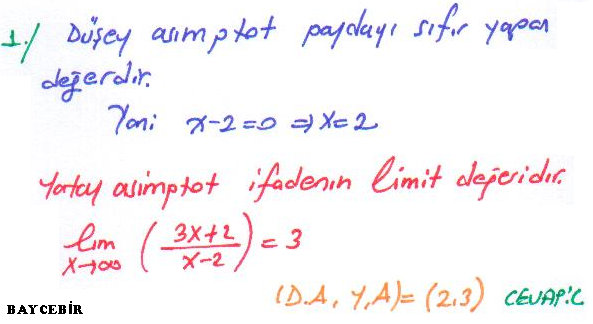 1./ Düşey asımptot paydayı sıfır yapan
değerdir.
Yani x-2=0 ⇒ x=2
Yatay asimptot ifadenin limit değeridir.
lim x→∞ (3x+2 / x-2) = 3
(D.A, Y.A) = (2,3) CEVAP:C
BAYCEBİR